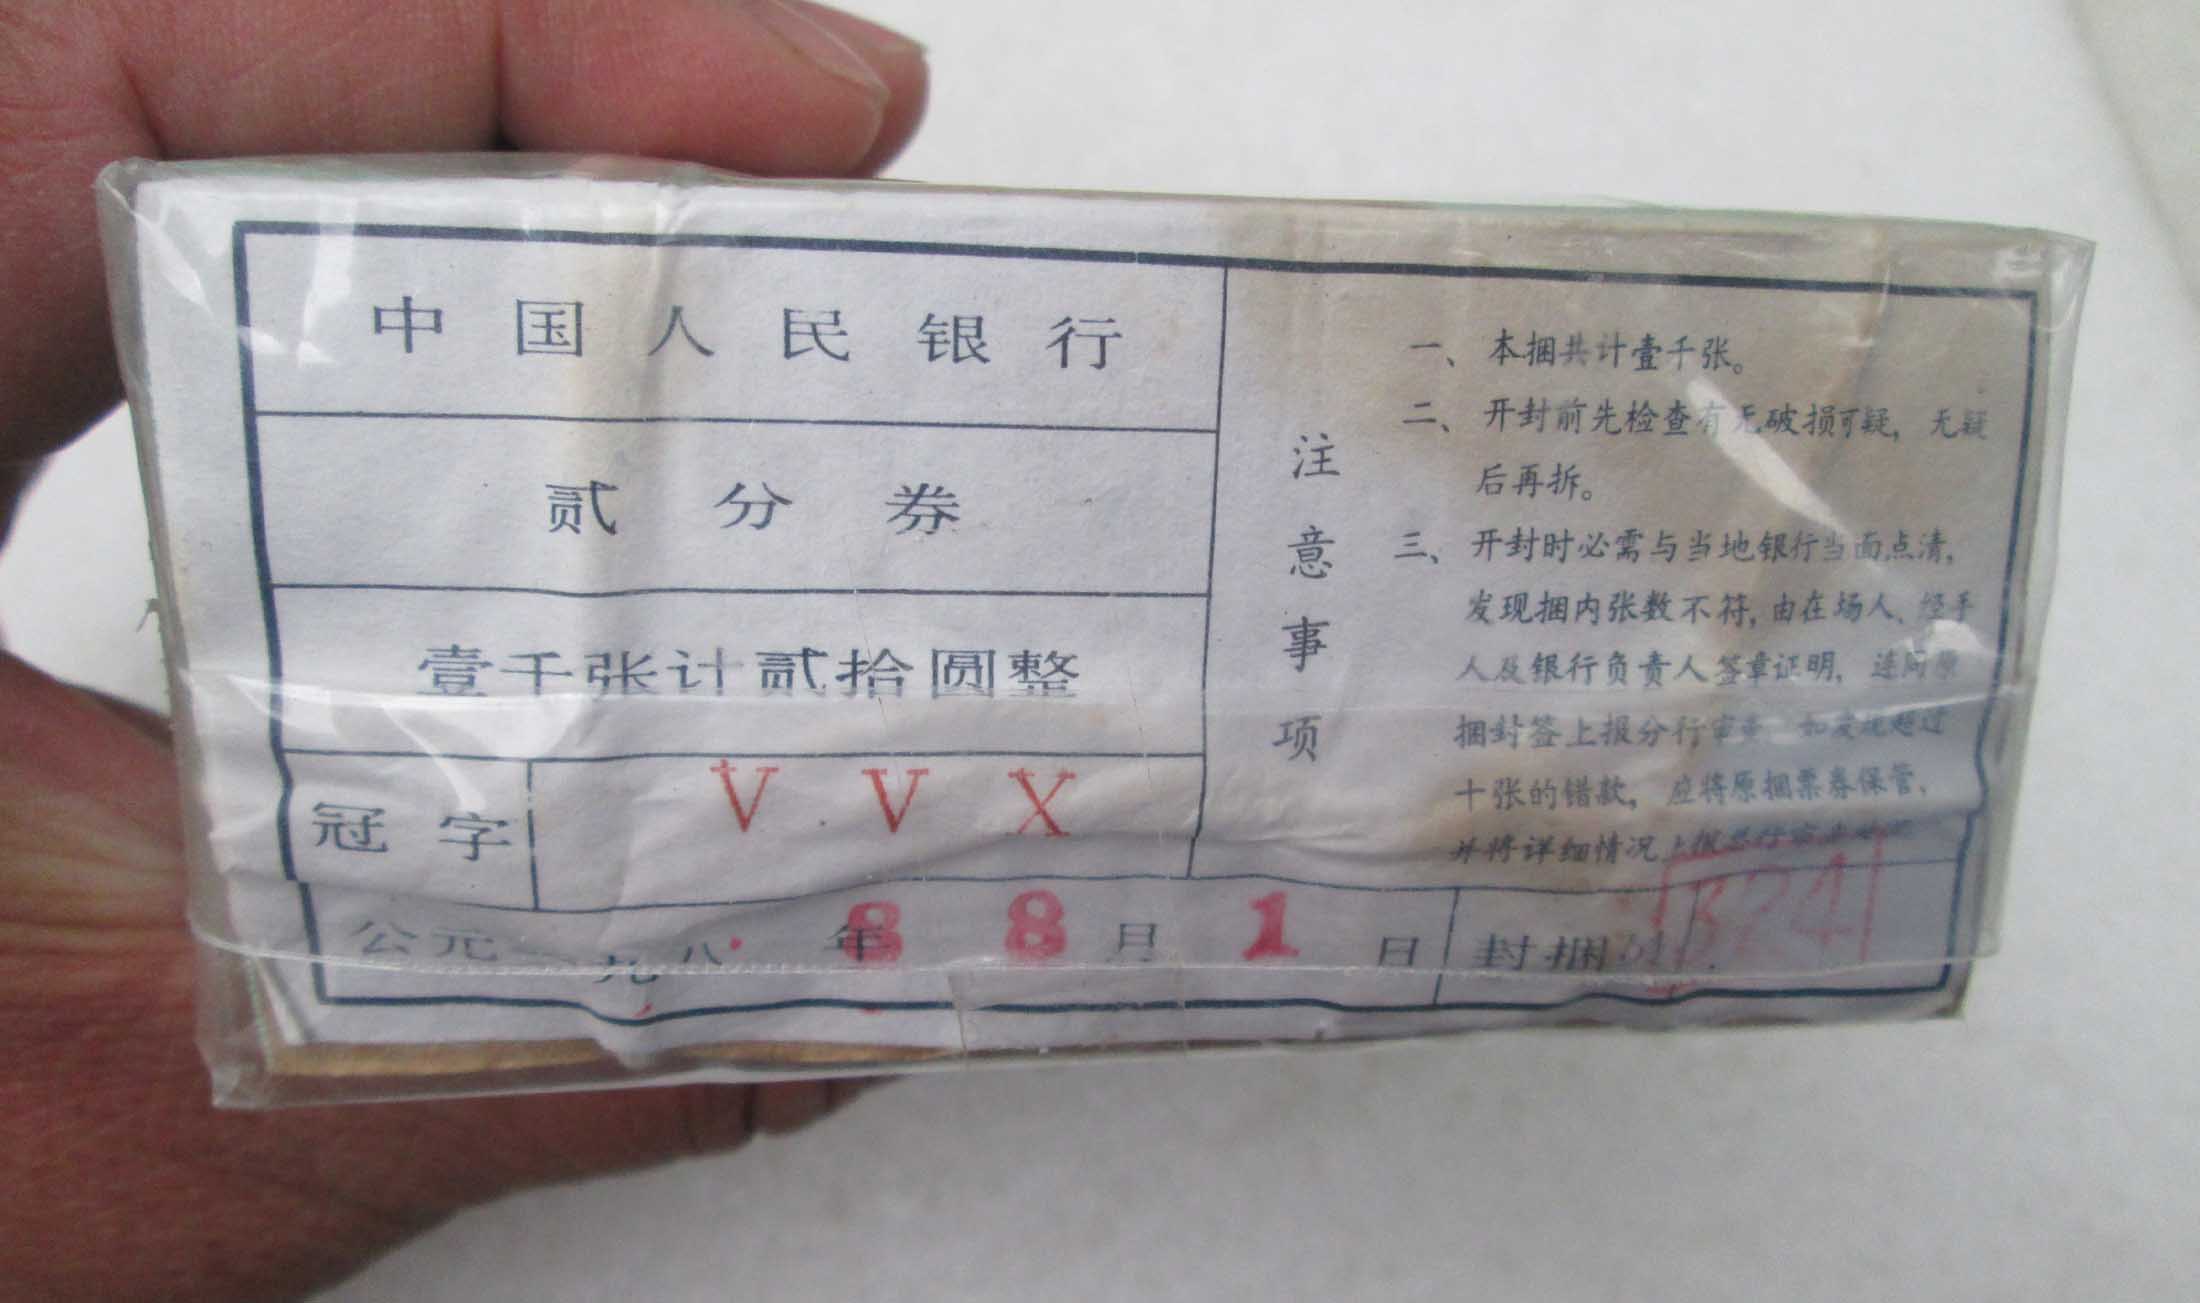 中国人民银行
贰分券
壹千张计贰拾圆整
冠字 V V X
注意事项
一、本捆共计壹千张。
二、开封前先检查有无破损可疑，无疑
后再拆。
三、开封时必需与当地银行当面点清，
发现捆内张数不符，由在场人、经手
人及银行负责人签章证明，连同原
捆封签上报分行审查。如发现超过
十张的错款，应将原捆票券保管，
并将详细情况上报总行
公元一九八8年8月1日
封捆 324